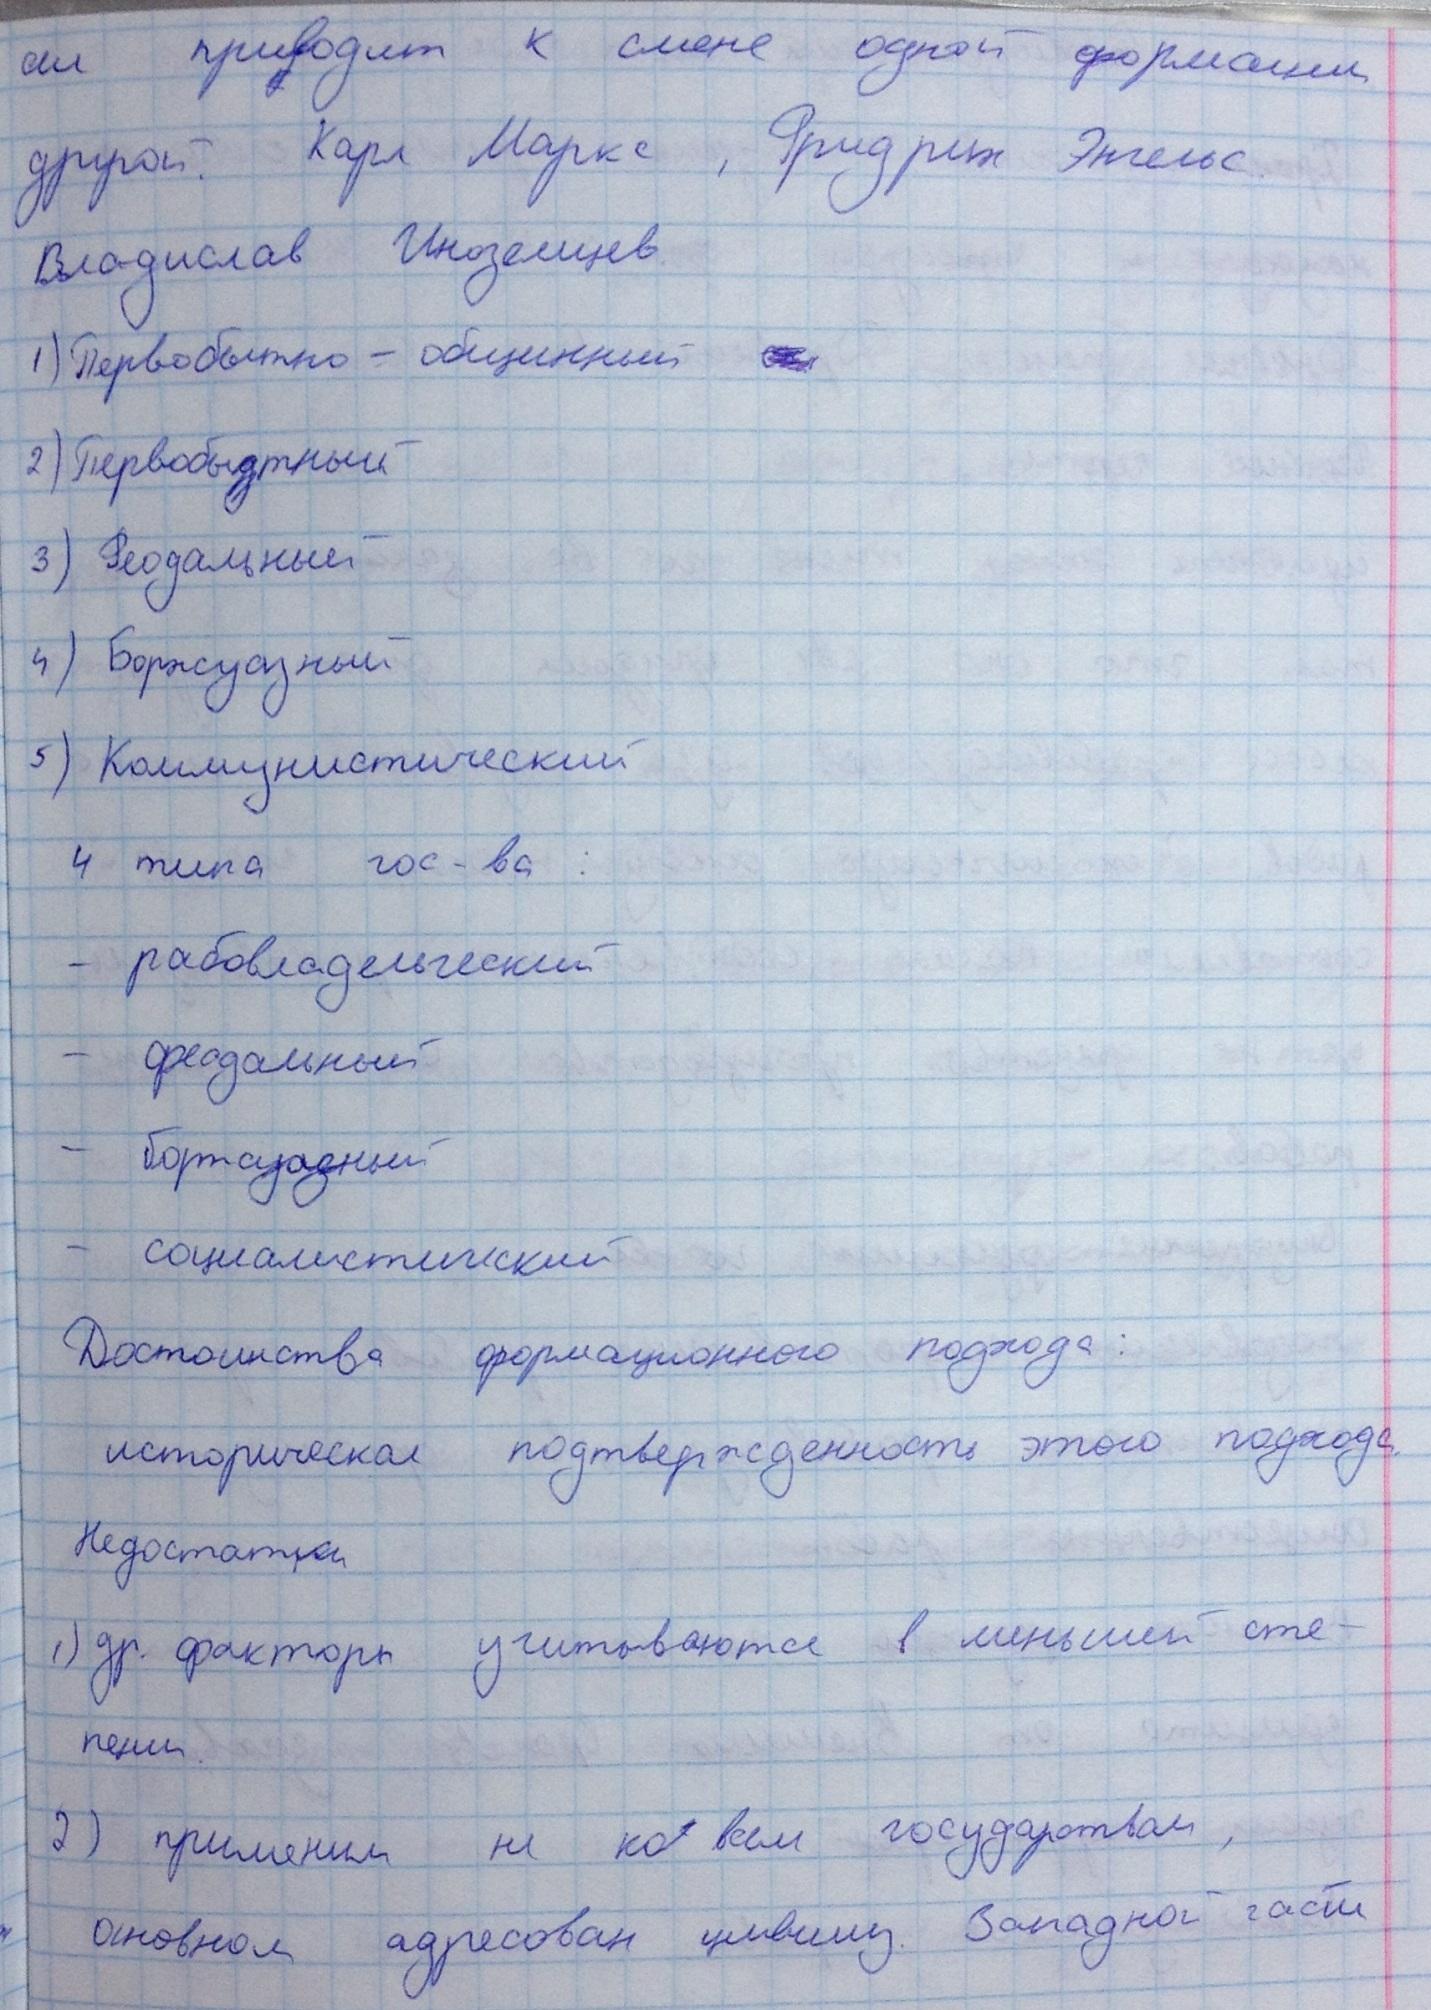 ил приводит к смене одной формации
другой. Карл Маркс, Фридрих Энгельс.
Владислав Иноземцев.
1) Первобытно - общинный
2) Первобытный
3) Феодальный
4) Боржуазный
5) Коммунистический
4 типа гос-ва:
- рабовладельческий
- феодальный
- боржуазный
- социалистический
Достоинства формационного подхода:
историческая подтвержденность этого подхода.
Недостатки
1) др. факторы учитываются в меньшей сте-
пени.
2) применим не ко всем государствам,
основном адресован цивилиз. Западной части